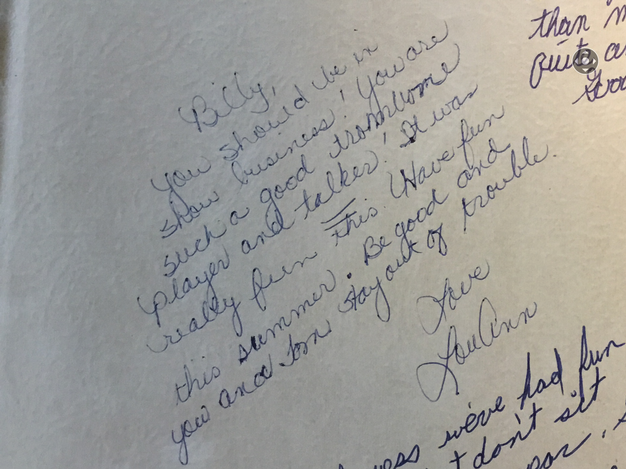 Billy,
You should be in
show business! You are
such a good trombome
player and talker! It was
really fun this (Have fun
this summer. Be good and
you and Tom stay out of trouble.
Love
LouAnn
than
Quit
we've had fun
don't sit